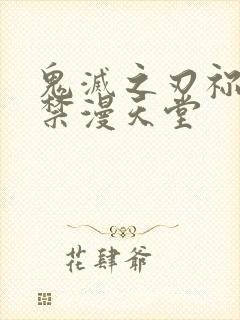 鬼滅之刃祢
禁漫天堂
花肆爺